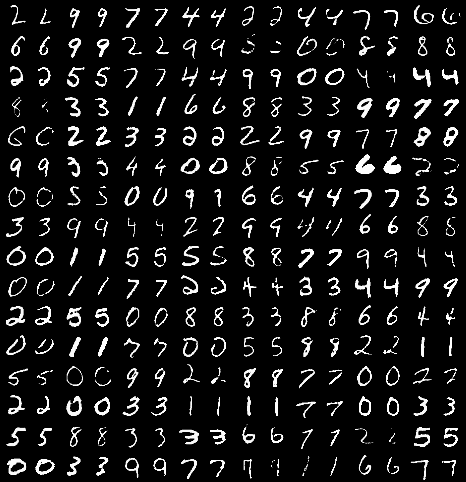 2 2 9 9 7 7 4 4 2 2 4 4 7 7 6 6
6 6 9 9 2 2 9 9 5 0 0 8 8 8 8
2 2 5 5 7 7 4 4 9 9 0 0 4 4 4 4
8 3 3 1 1 6 6 8 8 3 3 9 9 7 7
6 2 2 3 3 2 2 2 2 9 9 7 7 8 8
9 9 3 3 4 4 0 0 8 8 5 5 6 6 2 2
0 0 5 5 0 0 9 9 6 6 4 4 7 7 3 3
3 3 9 9 4 4 2 2 9 9 4 4 6 6 8 8
0 0 1 1 5 5 5 5 8 8 7 7 9 9 4 4
0 0 1 1 7 7 2 2 4 4 3 3 4 4 9 9
2 2 5 5 0 0 8 8 3 3 8 8 6 6 4 4
0 0 1 1 7 7 0 0 5 5 8 8 2 2 1 1
5 5 0 0 9 9 2 2 8 8 7 7 0 0 2 2
2 2 0 0 3 3 1 1 1 1 7 7 0 0 3 3
5 5 8 8 3 3 3 3 6 6 7 7 2 2 5 5
0 0 3 3 9 9 7 7 1 1 6 6 7 7